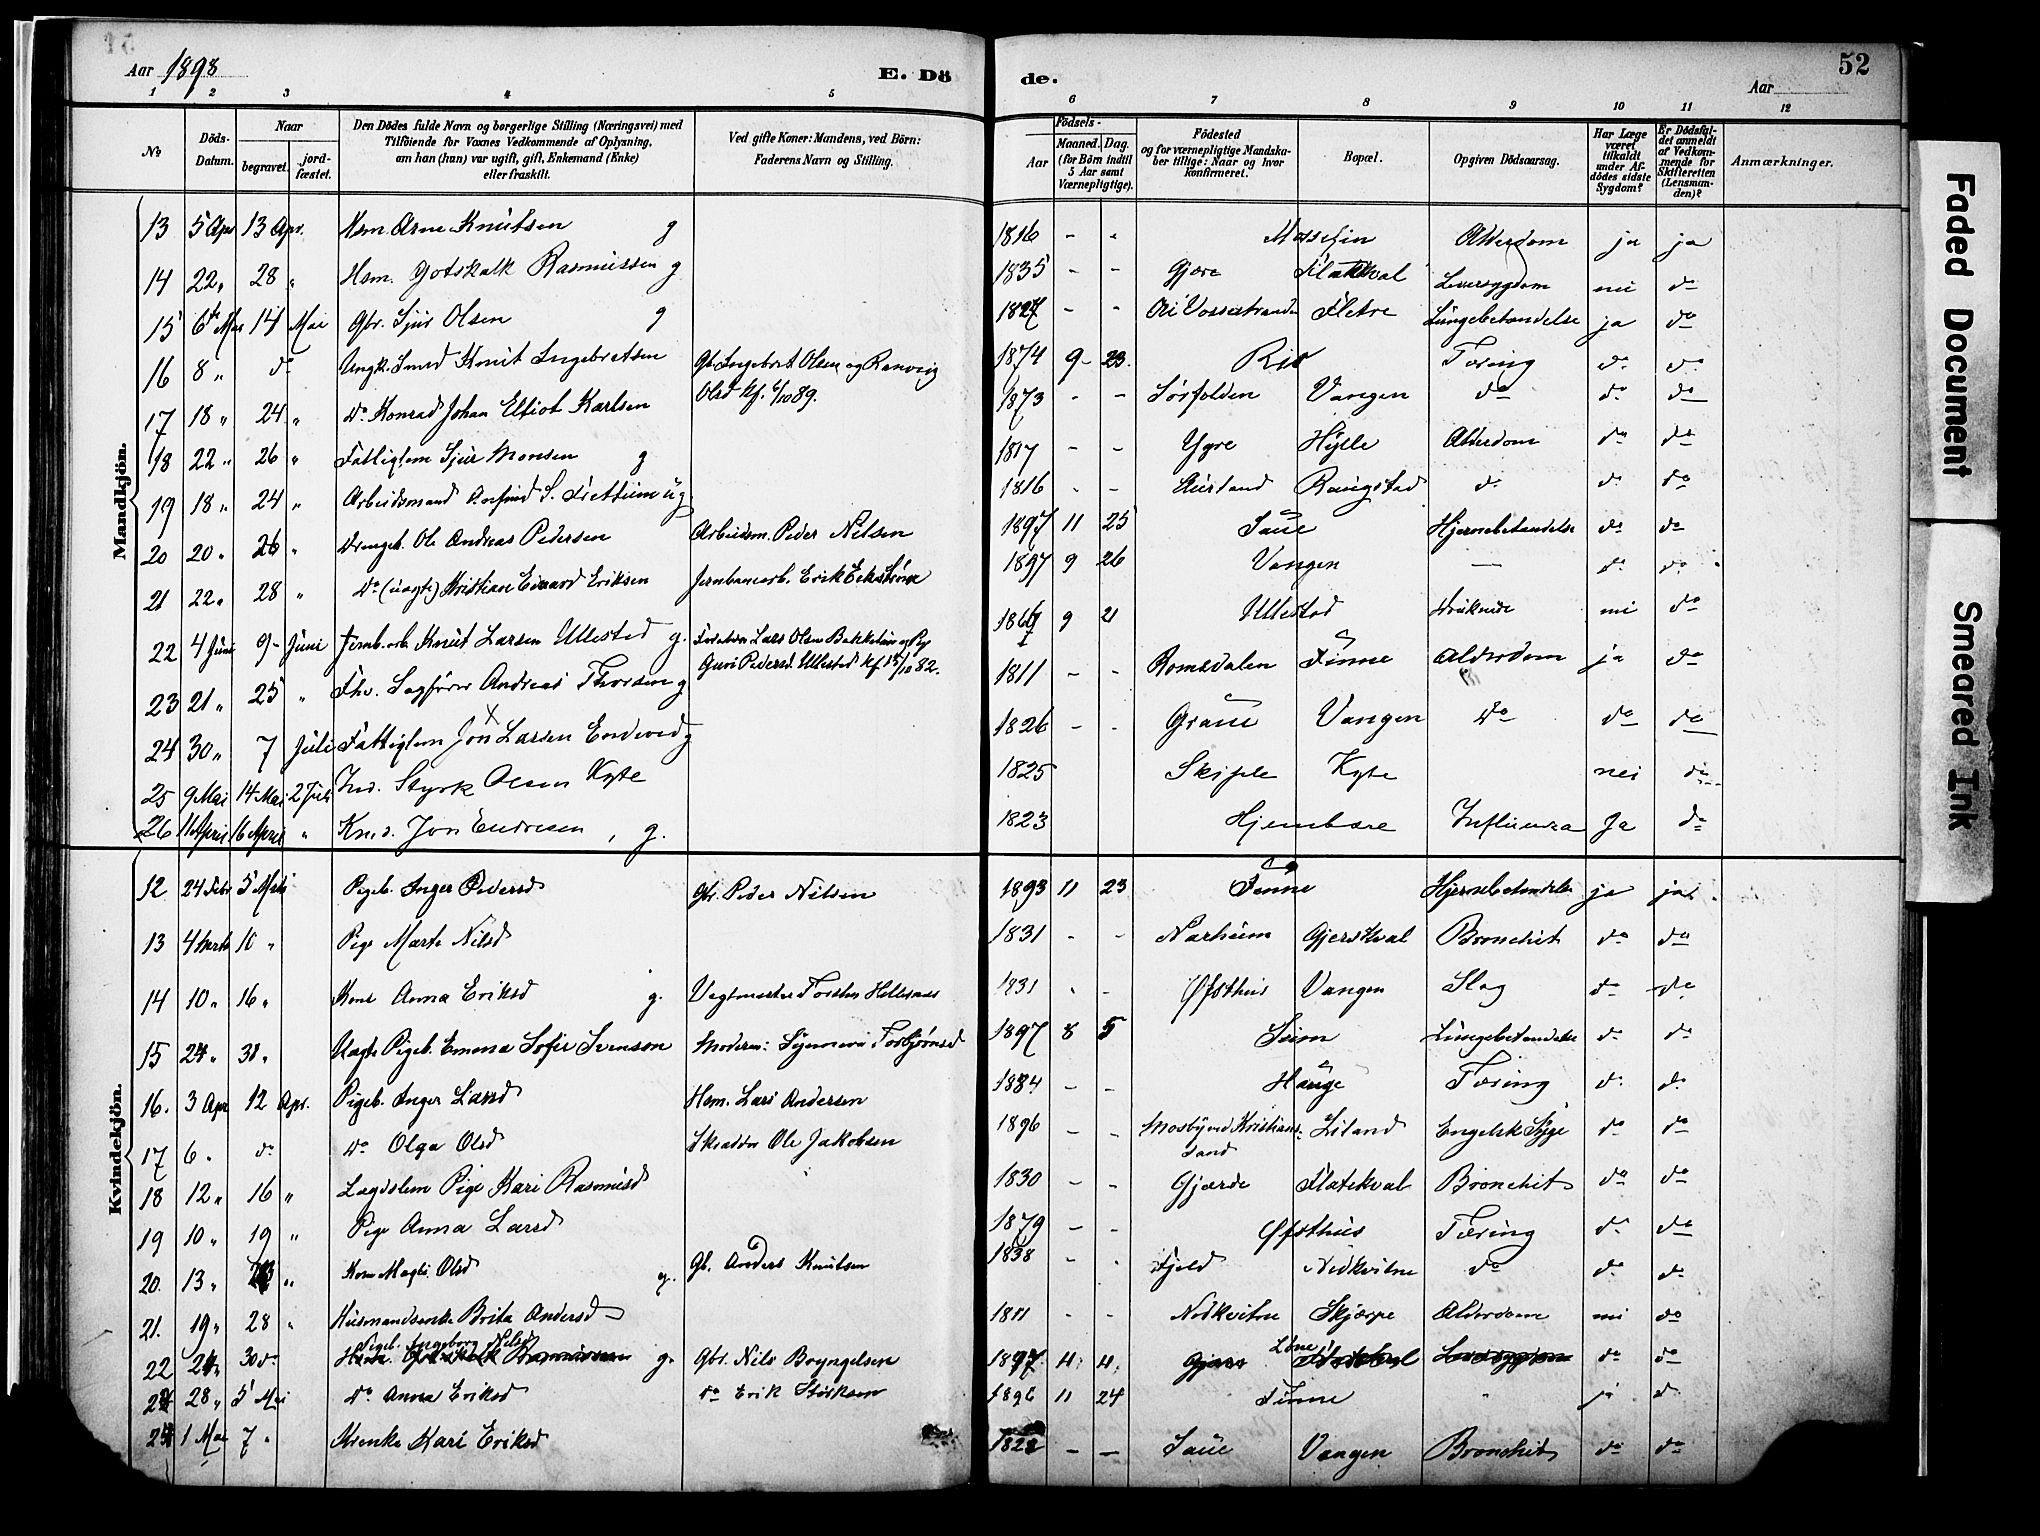 Aar 1898
E. Dö
de.
52
Aar
1 2 3 4 5 6 7 8 9 10 11 12
No
Döds-Datum.
Naar
begravet.
jord-fæstet.
Den Dödes fulde Navn og borgerlige Stilling (Næringsvei) med
Tilföiende for Voxnes Vedkommende af Oplysning,
om han (hun) var ugift, gift, Enkemand (Enke)
eller fraskilt.
Ved gifte Koner: Mandens, ved Börn:
Faderens Navn og Stilling.
Födsels-
Aar
Maaned. Dag.
(for Börn indtil
5 Aar samt
Værnepligtige).
Födested
og for værnepligtige Mandska-
ber tillige: Naar og hvor
konfirmeret.
Bopæl.
Opgiven Dödsaarsag.
Har Læge
været
tilkaldt
under Af-
dödes sidste
Sygdom?
Er Dödsfal-
det anmeldt
af Vedkom-
mende for
Skifteretten
(Lensman-
den)?
Anmærkninger.
Mandkjön.
13 5 Apr 13 Apr. Hsm. Arne Knutsen g 1816 - - Alderdom ja ja
14 22 " 28 " Hsm. Gotskalk Rasmussen g 1835 - - Gjære Flatekval Leversygdom nei do
15 6te Mai 14 Mai Gbr. Sjur Olsen g 1827 - - Vossestranden Fletre Lungebetændelse ja do
16 8 " do Ungk. Smed Knut Ingebretsen Gb. Ingebret Olsen og Ranveig 1874 9 - 23. Tæring do do
Olsd kf. 6/10 89.
17 18 " 24 " do Konrad Johan Elliot Karlsen 1873 - - Sørfolden Vangen do do do
18 22 " 26 " Fattiglem Sjur Monsen g 1817 - - Ygre Hylle Alderdom do do
19 18 " 24 " Arbeidsmand Anfind S. Frettum ug 1816 - - Aurland Rongstad do do do
20 20 " 26 " Drengeb. Ole Andreas Pedersen Arbeidsm. Peder Nilsen 1897 11 25 Saue Hjernebetændelse do do
21 22 " 28 " do (uægte) Kristian Edvard Eriksen Jernbanearb. Erik Eckström 1897 9 26 Vangen — do do
22 4 Juni 9 - Juni Jernb. arb. Knut Larsen Ullestad g. 9 21 Ullestad druknede nei do
Guri Pedersd. Ullestad kf. 15/10 82.
23 21 " 25 " Fhv. Sagfører Andreas Thorsen g 1811 - - Romsdalen Finne Alderdom ja do
24 30 " 7 Juli Fattiglem Jon Larsen Endeved g 1826 - - Graue Vangen do do do
25 9 Mai 14 Mai 2 Juli Ind. Styrk Olsen Kyte 1825 Skiple Kyte nei do
26 11 April 16 April " Jon Endresen, g. 1823 Influenza Ja do
Kvindekjön.
12 24 Febr 5 Marts Pigeb. Inger Pedersd Gbr. Peder Nilsen 1893 11 23 Finne Hjernebetændelse ja ja
13 4 Marts 10 " Pige Marta Nilsd 1831 - - Narheim Gjerskval Bronchit do do
14 10 " 16 " Kone Anna Eriksd g. Vegtmester Torsten Hellesnes 1831 - - Øfsthus Vangen Slag do do
15 24 " 31 " Uægte Pigeb. Emma Sofie Svenson Moderen: Synneva Torbjørnsd 1897 8 5 Seim Lungebetændelse do do
16. 3 Apr 12 Apr. Pigeb. Inger Larsd Hsm. Lars Andersen 1884 - - Hauge Tæring do do
17 6 " do do Olga Olsd Skrædder Ole Jakobsen 1896 - - Mosby ved Kristian- Liland Engelsk Syge do do
sand
18 12 " 16 " Lægdslem Pige Kari Rasmusd 1830 - - Gjærde Flatekval Bronchit do do
19 10 " 19 " Pige Anna Larsd 1879 - - Øfsthus Tæring do do
20. 13 " 23 " Kone Magli Olsd g. Gb. Anders Knutsen 1838 - - Fjeld Nedkvitne do do do
21. 19 " 28 " Husmandsenke Brita Andersd 1811 - - Nedkvitne Skjærpe Alderdom nei do
22 30 do Pigeb. Ingeborg Nilsd g. Gbr. Nils Bryngelsen 1897 11. 11. Løne do do
28 " 5 Mai do Anna Eriksd do Erik Størksen 1896 11 24 Finne " ja do
1 Mai 7 " Kari Eriksd - - Saue Vangen Bronchit do do
Faded Document
Smeared Ink